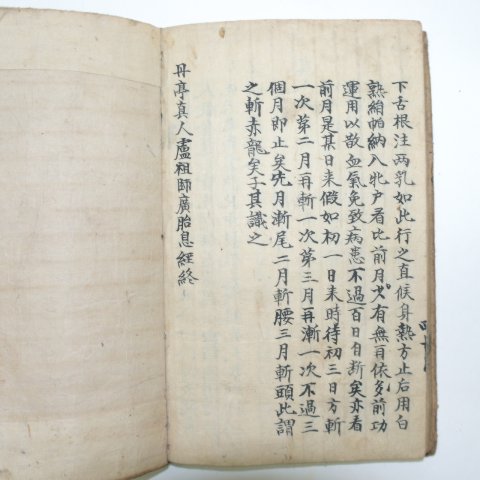 下舌根注两乳如此行之直候身熱方止后用白
熟絹帕納入牝户看比前月欠有無百依多前功
運用以散血氣免致病患不過百日自断矣亦看
前月是某日来假如初一日来時待初三日方斬
一次第二月再斬一次第三月再漸一次不過三
個月即止矣先月漸尾二月斬腰三月斬頭此謂
之斬赤龍矣子其識之
丹亭真人盧祖師廣胎息經終